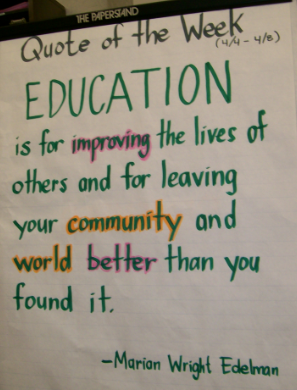 THE PAPERSTAND
Quote of the Week
(4/4 - 4/8)
EDUCATION
is for improving the lives of
others and for leaving
your community and
world better than you
found it.
-Marian Wright Edelman